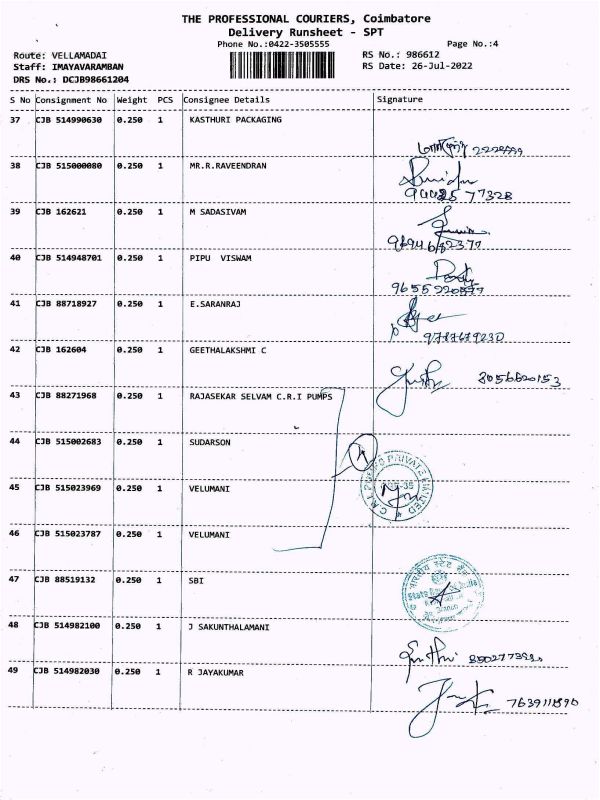 THE PROFESSIONAL COURIERS, Coimbatore
Delivery Runsheet - SPT
Phone No.:0422-3505555 Page No.:4
Route: VELLAMADAI RS No.: 986612
Staff: IMAYAVARAMBAN RS Date: 26-Jul-2022
DRS No.: DCJB98661204
S No Consignment No Weight PCS Consignee Details Signature
37 CJB 514990630 0.250 1 KASTHURI PACKAGING
38 CJB 515000080 0.250 1 MR.R.RAVEENDRAN
77328
39 CJB 162621 0.250 1 M SADASIVAM
40 CJB 514948701 0.250 1 PIPU VISWAM
41 CJB 88718927 0.250 1 E.SARANRAJ
42 CJB 162604 0.250 1 GEETHALAKSHMI C
8056620153
43 CJB 88271968 0.250 1 RAJASEKAR SELVAM C.R.I PUMPS
44 CJB 515002683 0.250 1 SUDARSON
45 CJB 515023969 0.250 1 VELUMANI
C.R.I. PUMPS PRIVATE LIMITED
46 CJB 515023787 0.250 1 VELUMANI
47 CJB 88519132 0.250 1 SBI
भारतीय स्टेट बैंक
State Bank of India
48 CJB 514982100 0.250 1 J SAKUNTHALAMANI
49 CJB 514982030 0.250 1 R JAYAKUMAR
7639111890